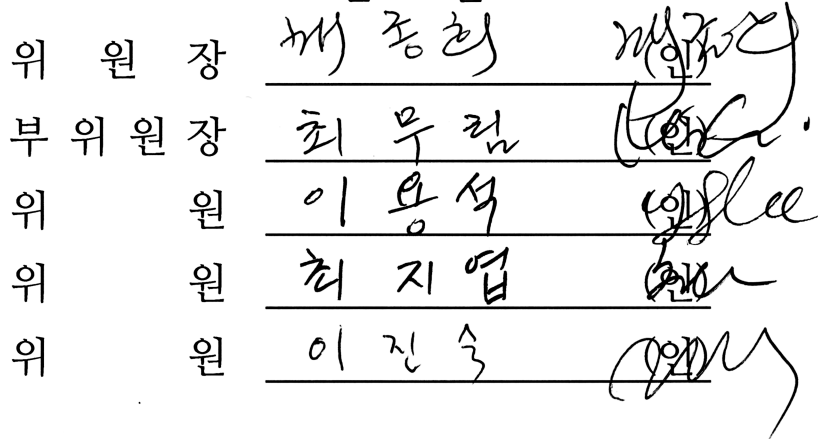 위 원 장 채 종 희 (인)
부 위 원 장 최 무 림 (인)
위 원 이 용 석 (인)
위 원 최 지 엽 (인)
위 원 이 진 숙 (인)